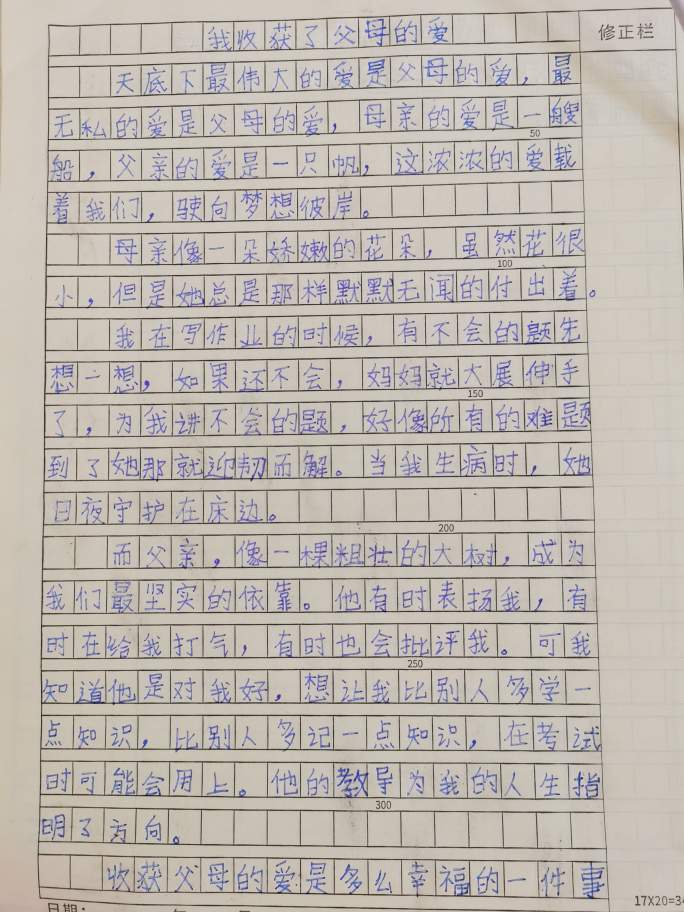 我收获了父母的爱
修正栏
天底下最伟大的爱是父母的爱，最
无私的爱是父母的爱，母亲的爱是一艘
50
船，父亲的爱是一只帆，这浓浓的爱载
着我们，驶向梦想彼岸。
母亲像一朵娇嫩的花朵，虽然花很
100
小，但是她总是那样默默无闻的付出着。
我在写作业的时候，有不会的题先
想一想，如果还不会，妈妈就大展伸手
150
了，为我讲不会的题，好像所有的难题
到了她那就迎韧而解。当我生病时，她
日夜守护在床边。
200
而父亲，像一棵粗壮的大树，成为
我们最坚实的依靠。他有时表扬我，有
时在给我打气，有时也会批评我。可我
250
知道他是对我好，想让我比别人多学一
点知识，比别人多记一点知识，在考试
时可能会用上。他的教导为我的人生指
300
明了方向。
收获父母的爱是多么幸福的一件事
日期：
17X20=34